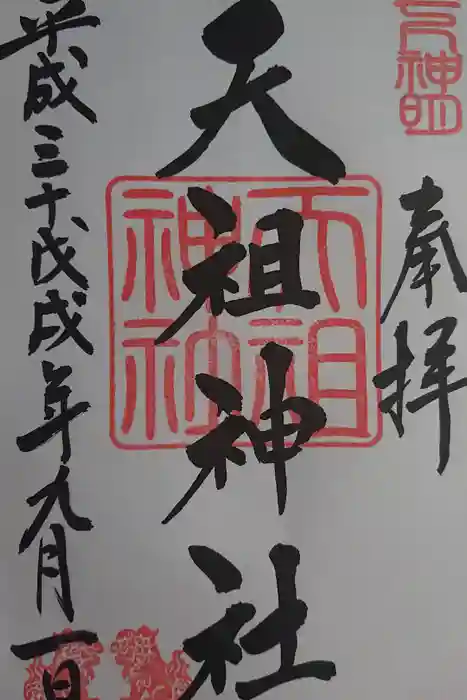 奉拝
天祖神社
平成三十戊戌年九月一日
天祖
神社
神明